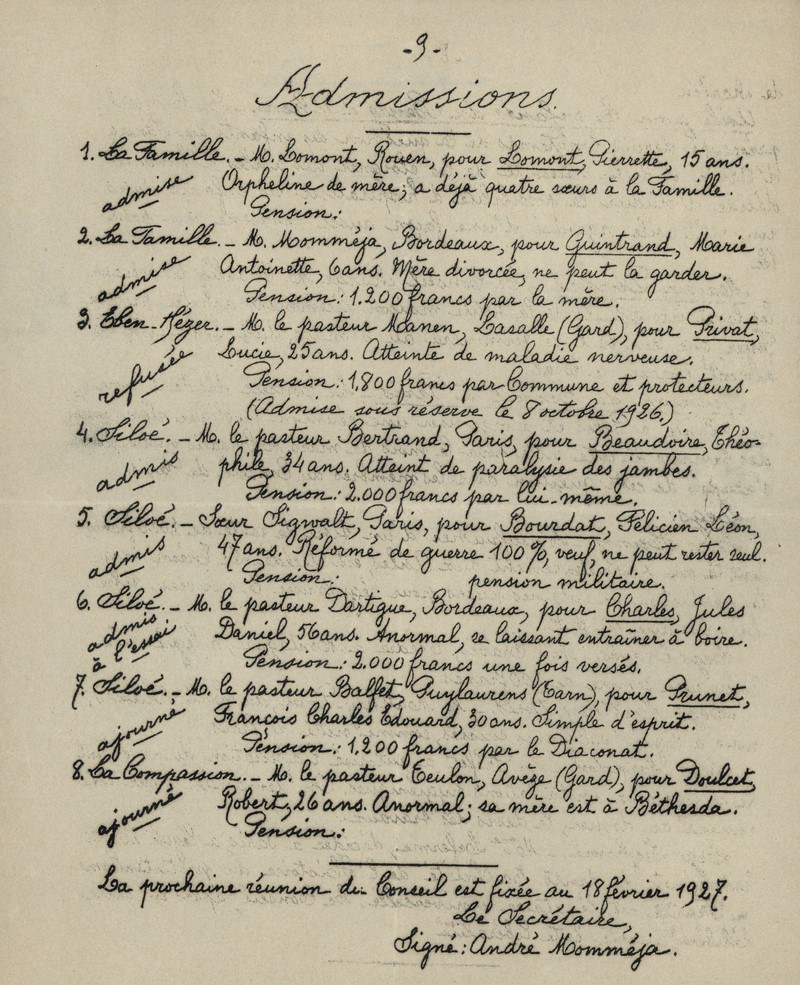 -9-
Admissions.
1. La Famille. - M. Lomont, Rouen, pour Lomont, Pierrette, 15 ans.
admise
Orpheline de mère; a déjà quatre sœurs à la Famille.
Pension:
2. La Famille. - M. Momméja, Bordeaux, pour Guintrand, Marie
admise
Antoinette, 6 ans. Mère divorcée, ne peut la garder.
Pension: 1.200 francs par la mère.
3. Eben-Hézer. - M. le pasteur Manen, Lasalle (Gard), pour Privat,
refusée
Lucie, 25 ans. Atteinte de maladie nerveuse.
Pension: 1.800 francs par Commune et protecteurs.
(Admise sous réserve le 8 octobre 1926.)
4. Siloé. - M. le pasteur Bertrand, Paris, pour Beaudoire, Théo-
admis
phile, 34 ans. Atteint de paralysie des jambes.
Pension: 2.000 francs par lui-même.
5. Siloé. - Sœur Sigwalt, Paris, pour Bourdat, Félicien Léon,
admis
47 ans. Réformé de guerre 100%, veuf, ne peut rester seul.
Pension: pension militaire.
6. Siloé. - M. le pasteur Dartigue, Bordeaux, pour Charles, Jules
admis
à l'essai
Daniel, 56 ans. Anormal, se laissant entraîner à boire.
Pension: 2.000 francs une fois versés.
7. Siloé. - M. le pasteur Balfet, Puylaurens (Tarn), pour Prunet,
ajourné
François Charles Edouard, 30 ans. Simple d'esprit.
Pension: 1.200 francs par le Diaconat.
8. La Compassion. - M. le pasteur Teulon, Avèze (Gard), pour Doulcet,
ajourné
Robert, 26 ans. Anormal; sa mère est à Béthesda.
Pension:
La prochaine réunion du Conseil est fixée au 18 février 1927.
Le Secrétaire,
Signé: André Momméja.